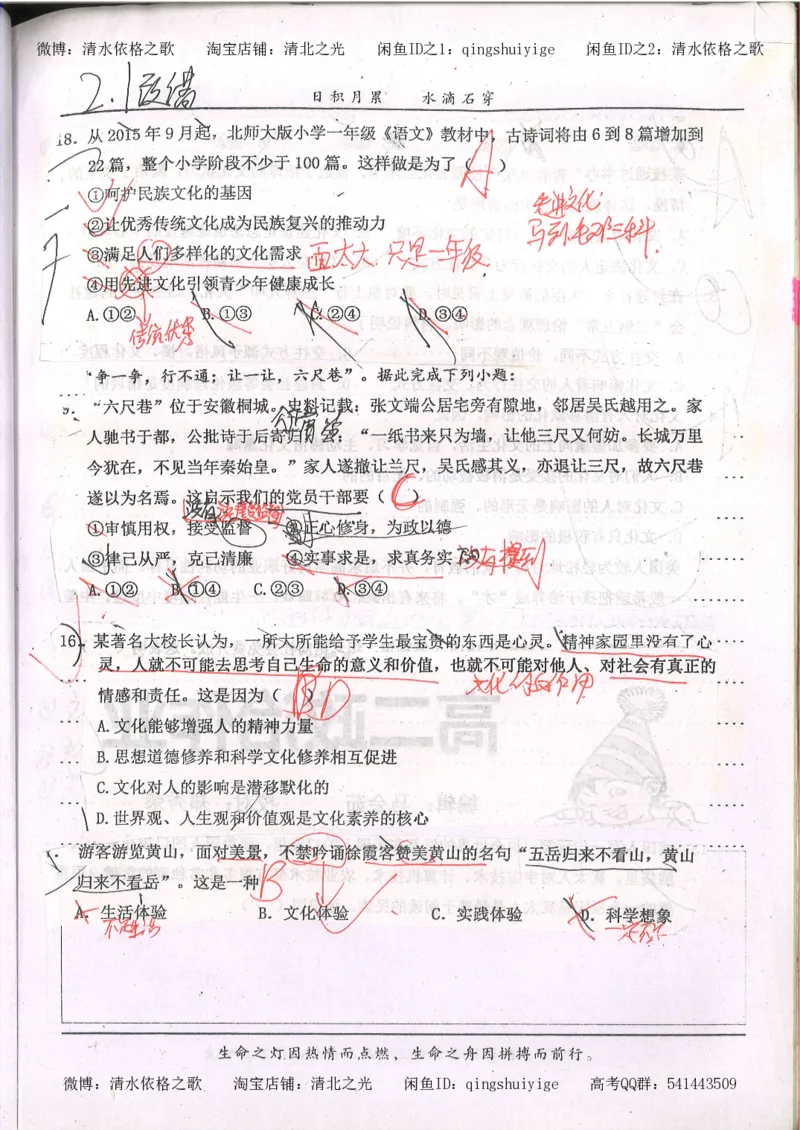 微博：清水依格之歌 淘宝店铺：清北之光 闲鱼ID之1：qingshuiyige 闲鱼ID之2：清水依格之歌
2.1 政治
日积月累 水滴石穿
18. 从 2015 年 9 月起，北师大版小学一年级《语文》教材中，古诗词将由 6 到 8 篇增加到
22 篇，整个小学阶段不少于 100 篇。这样做是为了（ A ）
①呵护民族文化的基因
先进文化：
②让优秀传统文化成为民族复兴的推动力
马 列 毛 邓 三 科
③满足人们多样化的文化需求 面太大，只是一年级
④用先进文化引领青少年健康成长
A. ①② B. ①③ C. ②④ D. ③④
传统优秀
“争一争，行不通；让一让，六尺巷”。据此完成下列小题：
“六尺巷”位于安徽桐城。史料记载：张文端公居宅旁有隙地，邻居吴氏越用之。家
人驰书于都，公批诗于后寄归 ：“一纸书来只为墙，让他三尺又何妨。长城万里
今犹在，不见当年秦始皇。”家人遂撤让兰尺，吴氏感其义，亦退让三尺，故六尺巷
遂以为名焉。这启示我们的党员干部要（ C ）
没有
①审慎用权，接受监督 ②正心修身，为政以德
③律己从严，克己清廉 ④实事求是，求真务实 没有提到
A. ①② B. ①④ C. ②③ D. ③④
16. 某著名大校长认为，一所大所能给予学生最宝贵的东西是心灵。精神家园里没有了心
灵，人就不可能去思考自己生命的意义和价值，也就不可能对他人、对社会有真正的
情感和责任。这是因为（ D ）
A. 文化能够增强人的精神力量
B. 思想道德修养和科学文化修养相互促进
C. 文化对人的影响是潜移默化的
D. 世界观、人生观和价值观是文化素养的核心
游客游览黄山，面对美景，不禁吟诵徐霞客赞美黄山的名句“五岳归来不看山，黄山
归来不看岳”。这是一种 B
A. 生活体验 B. 文化体验 C. 实践体验 D. 科学想象
生命之灯因热情而点燃，生命之舟因拼搏而前行。
微博：清水依格之歌 淘宝店铺：清北之光 闲鱼ID：qingshuiyige 高考QQ群：541443509